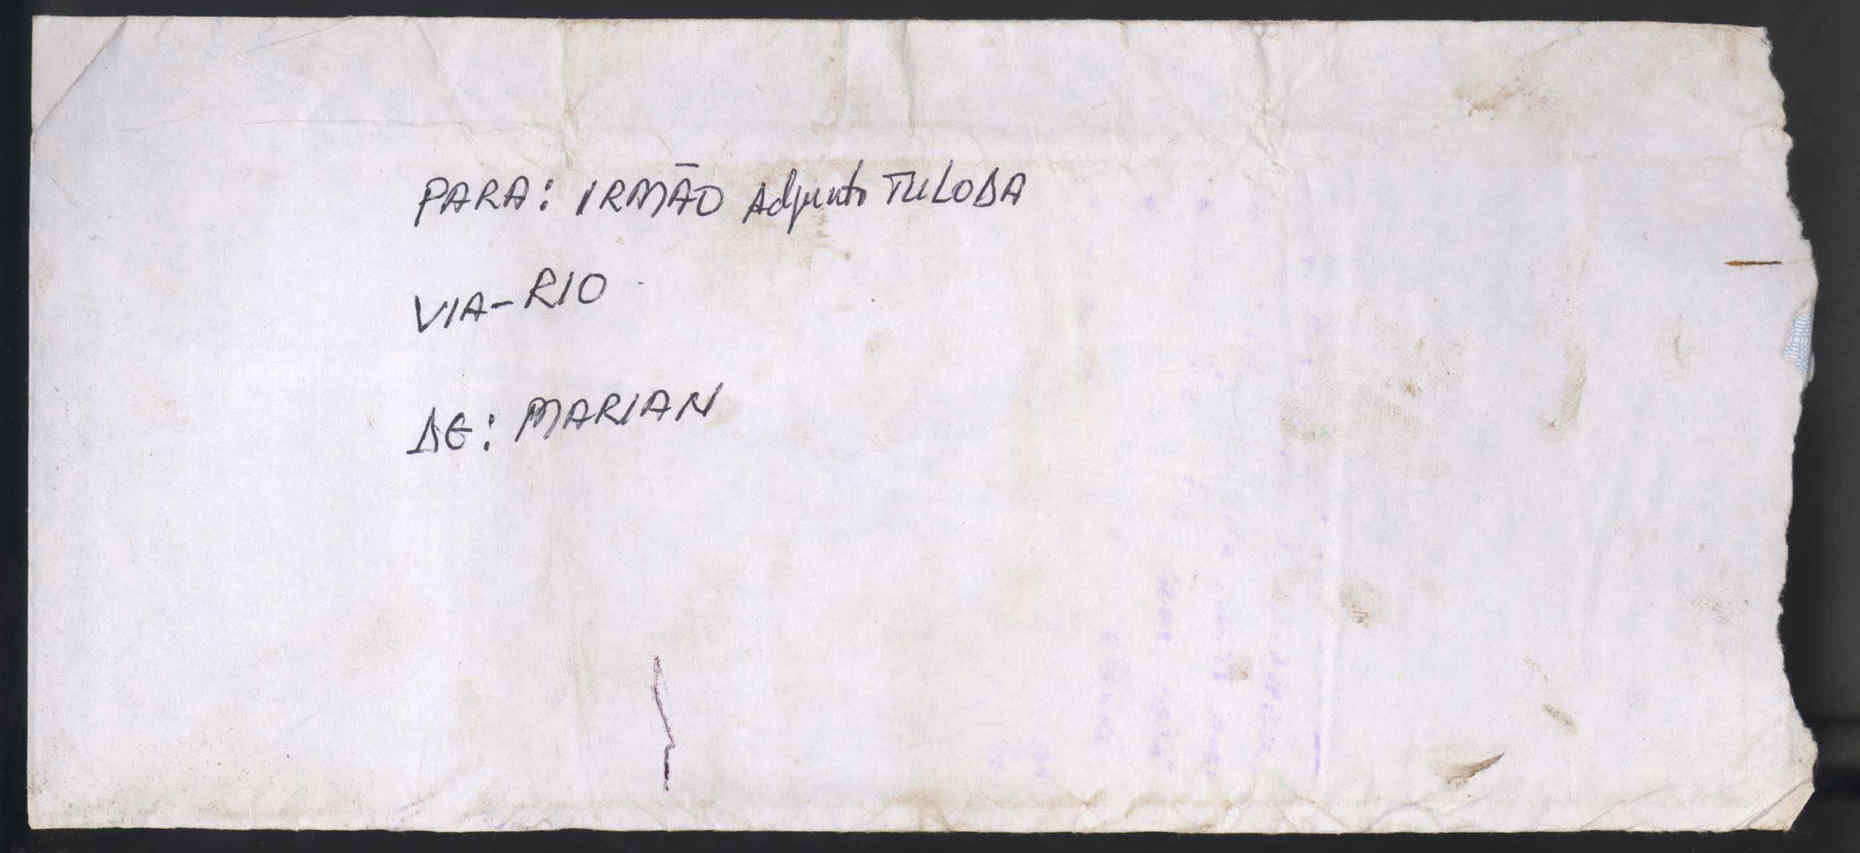 PARA: IRMÃO Adjunto TULODA
VIA-RIO
DE: MARIAN